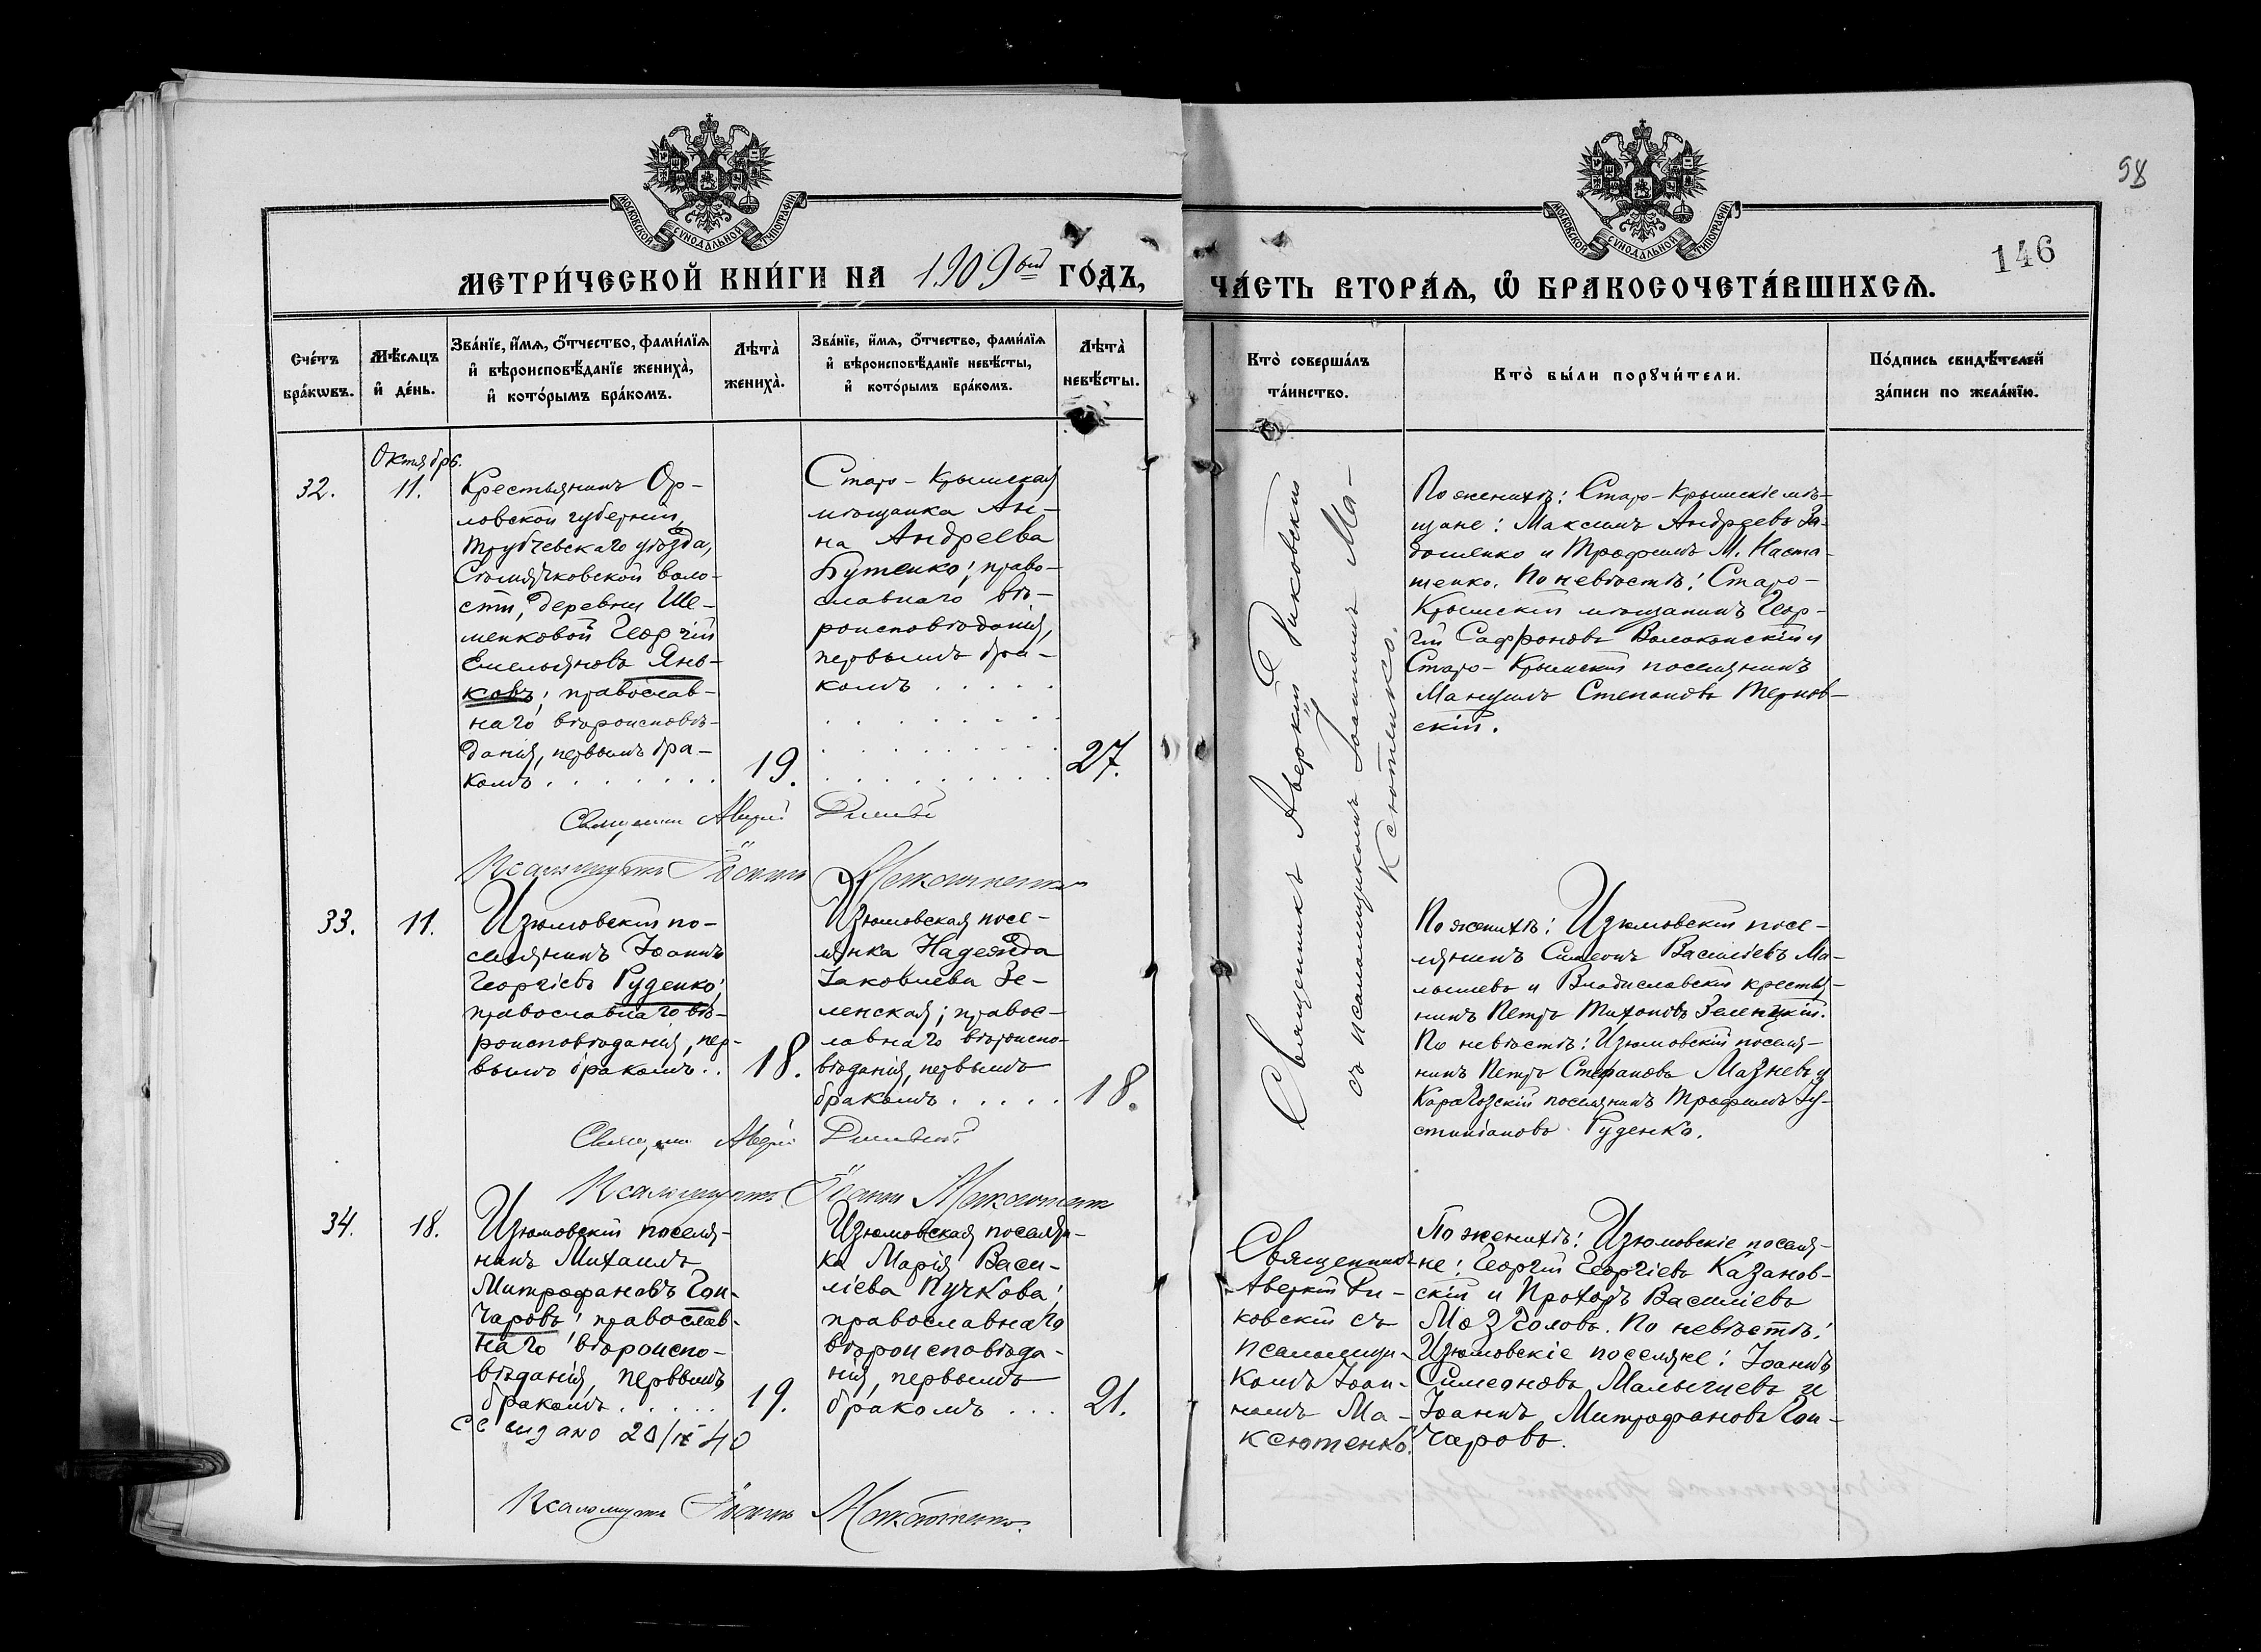 98
146
МОСКОВСКОЙ СУНОДАЛЬНОЙ ТИПОГРАФІИ
МОСКОВСКОЙ СУНОДАЛЬНОЙ ТИПОГРАФІИ
МЕТРИ́ЧЕСКОЙ КНИ́ГИ НА 1909 ый ГО́ДЪ,
ЧА́СТЬ ВТОРА́Ѧ, Ѽ БРАКОСОЧЕТА́ВШИХСѦ.
Сче́тъ
бра́кѡвъ.
Мѣ́сѧцъ
и҆ де́нь.
Зва́нїе, и҆́мѧ, о҆́тчество, фами́лїѧ
и҆ вѣроисповѣ́данїе жениха̀,
и҆ кото́рымъ бра́комъ.
Лѣта̀
жениха̀.
Зва́нїе, и҆́мѧ, о҆́тчество, фами́лїѧ
и҆ вѣроисповѣ́данїе невѣ́сты,
и҆ кото́рымъ бра́комъ.
Лѣта̀
невѣ́сты.
Кто̀ соверша́лъ
та́инство.
Кто̀ бы́ли порꙋчи́тели.
По́дпись свидѣ́телей
за́писи по жела́нїю.
32.
Октябрь.
11.
Крестьянинъ Ор-
ловской губерніи,
Трубчевскаго уѣзда,
воло-
сти, деревни Ше-
менковой Георгій
Емельяновъ Янь-
ковъ; православ-
наго вѣроисповѣ-
данія, первымъ бра-
комъ . . . . . .
19.
Старо-Крымская
мѣщанка Ан-
на Андреева
Бутенко; право-
славнаго вѣ-
роисповѣданія,
первымъ бра-
комъ . . . . .
27.
Священникъ Аверкій Риковскій
съ псаломщикомъ Іоанномъ Ма-
ксютенко.
По женихѣ: Старо-Крымскіе мѣ-
щане: Максимъ Андреевъ За-
и Трофимъ М. Наста-
шенко. По невѣстѣ: Старо-
Крымскій мѣщанинъ Геор-
гій Сафроновъ Волоконскій и
Старо-Крымскій поселянинъ
Мануилъ Степановъ Тернов-
скій.
Священникъ Аверкій
Псаломщикъ Іоаннъ Максютенко
33.
11.
Изюмовскій по-
селянинъ Іоаннъ
Георгіевъ Руденко;
православнаго вѣ-
роисповѣданія, пер-
вымъ бракомъ . .
18.
Изюмовская посе-
лянка Надежда
Іаковлева Зе-
ленская; правос-
лавнаго вѣроиспо-
вѣданія, первымъ
бракомъ . . . . .
18.
По женихѣ: Изюмовскій посе-
лянинъ Симеонъ Василіевъ Ма-
лышевъ и Владиславскій крестья-
нинъ Петръ Тихоновъ Зеленскій.
По невѣстѣ: Изюмовскій поселя-
нинъ Петръ Стефановъ Мазневъ и
Карагозскій поселянинъ Трофимъ Іу-
стиніановъ Руденко.
Священникъ Аверкій
Псаломщикъ Іоаннъ Максютенко
34.
18.
Изюмовскій поселя-
нинъ Михаилъ
Митрофановъ Гон-
чаровъ; православ-
наго вѣроиспо-
вѣданія, первымъ
бракомъ . . . . .
19.
Изюмовская поселян-
ка Марія Васи-
ліева Пучкова;
православнаго
вѣроисповѣда-
нія, первымъ
бракомъ . . .
21.
Священникъ
Аверкій Ри-
ковскій съ
псаломщи-
комъ Іоан-
номъ Ма-
ксютенко.
По женихѣ: Изюмовскіе поселя-
не: Георгій Георгіевъ Казанов-
скій и Прохоръ Василіевъ
Мозголовъ. По невѣстѣ:
Изюмовскіе поселяне: Іоаннъ
Симеоновъ Малышевъ и
Іоаннъ Митрофановъ Гон-
чаровъ.
Псаломщикъ Іоаннъ Максютенко.